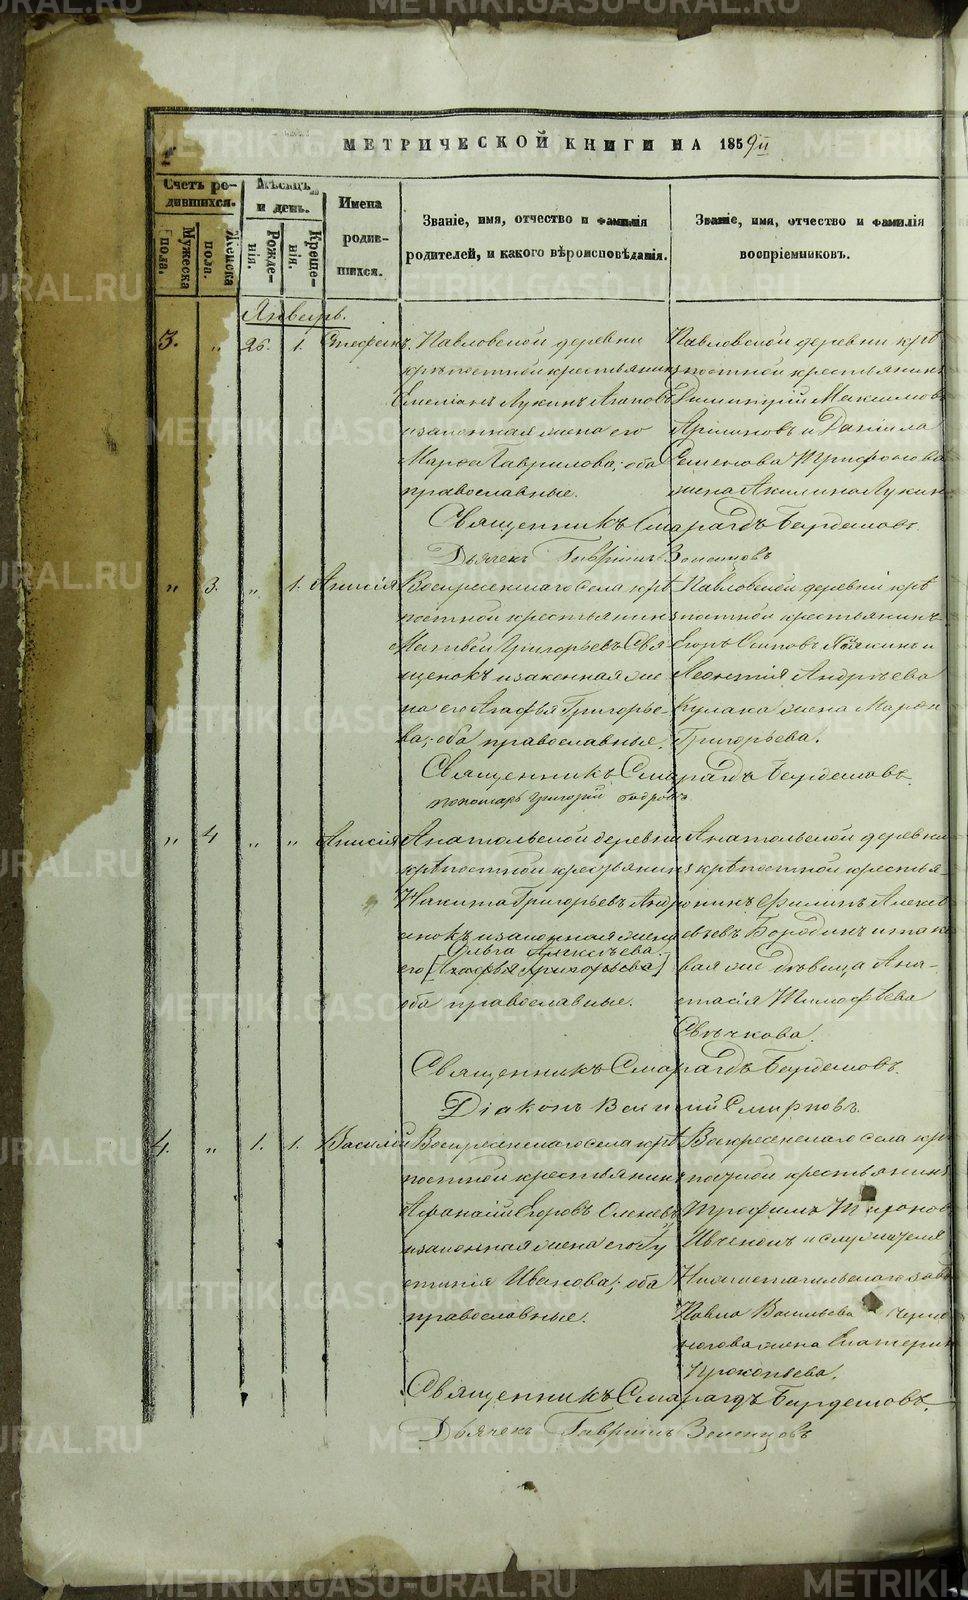 METRIKI.GASO-URAL.RU
МЕТРИЧЕСКОЙ КНИГИ НА 1859й
Счетъ родившихся.
Мужеска пола.
Женска пола.
Мѣсяцъ и день.
Рожденія.
Крещенія.
Имена родившихся.
Званіе, имя, отчество и фамилія родителей, и какого вѣроисповѣданія.
Званіе, имя, отчество и фамилія воспріемниковъ.
Январь.
3. " 26. 1. Стефанъ.
Павловской деревни
крѣпостной крестьянинъ
Емеліанъ Лукинъ Агаповъ
и законная жена его
Марѳа Гаврилова; оба
православные.
Павловской деревни крѣ
постной крестьянинъ
Димитрій Максимовъ
и Даніила
Семенова Трифонова
жена Акилина Лукин
Священникъ Смарагдъ Бирдемовъ.
Дьячекъ Гавріилъ
" 3. " 1. Анисія
Воскресенскаго села крѣ
постной крестьянинъ
Матвей Григорьевъ Свя
щенокъ и законная же
на его Агафья Григорье-
ва; оба православные.
Павловской деревни крѣ
постной крестьянинъ
Егоръ Осиповъ
Леонтія Андреева
Кулака жена Марѳа
Григорьева.
Священникъ Смарагдъ Бирдемовъ
пономарь Григорій
" 4 " " Анисія
Анатольской деревни
крѣпостной крестьянинъ
Никита Григорьевъ Андро
сенокъ и законная жена
Ольга Алексѣева.
его [Агафья Григорьева]
оба православные.
Анатольской деревни
крѣпостной крестья-
нинъ Филипъ Алексѣ
евъ Бородинъ и така
вая же дѣвица Ана-
стасія Тимофѣева
Свѣчкова.
Священникъ Смарагдъ Бирдемовъ.
Діаконъ Василій Смирновъ.
4. " 1. 1. Василій
Воскресенскаго села крѣ
постной крестьянинъ
Афанасій Егоровъ
и законная жена его Гу
стинія Иванова; оба
православные.
Воскресенскаго села крѣ
постной крестьянинъ
Трофимъ
и служителя
Нижнетагильскаго заво
Павла Васильева
жена Екатерин
Прокопьева.
Священникъ Смарагдъ Бирдемовъ.
Дьячекъ Гавріилъ